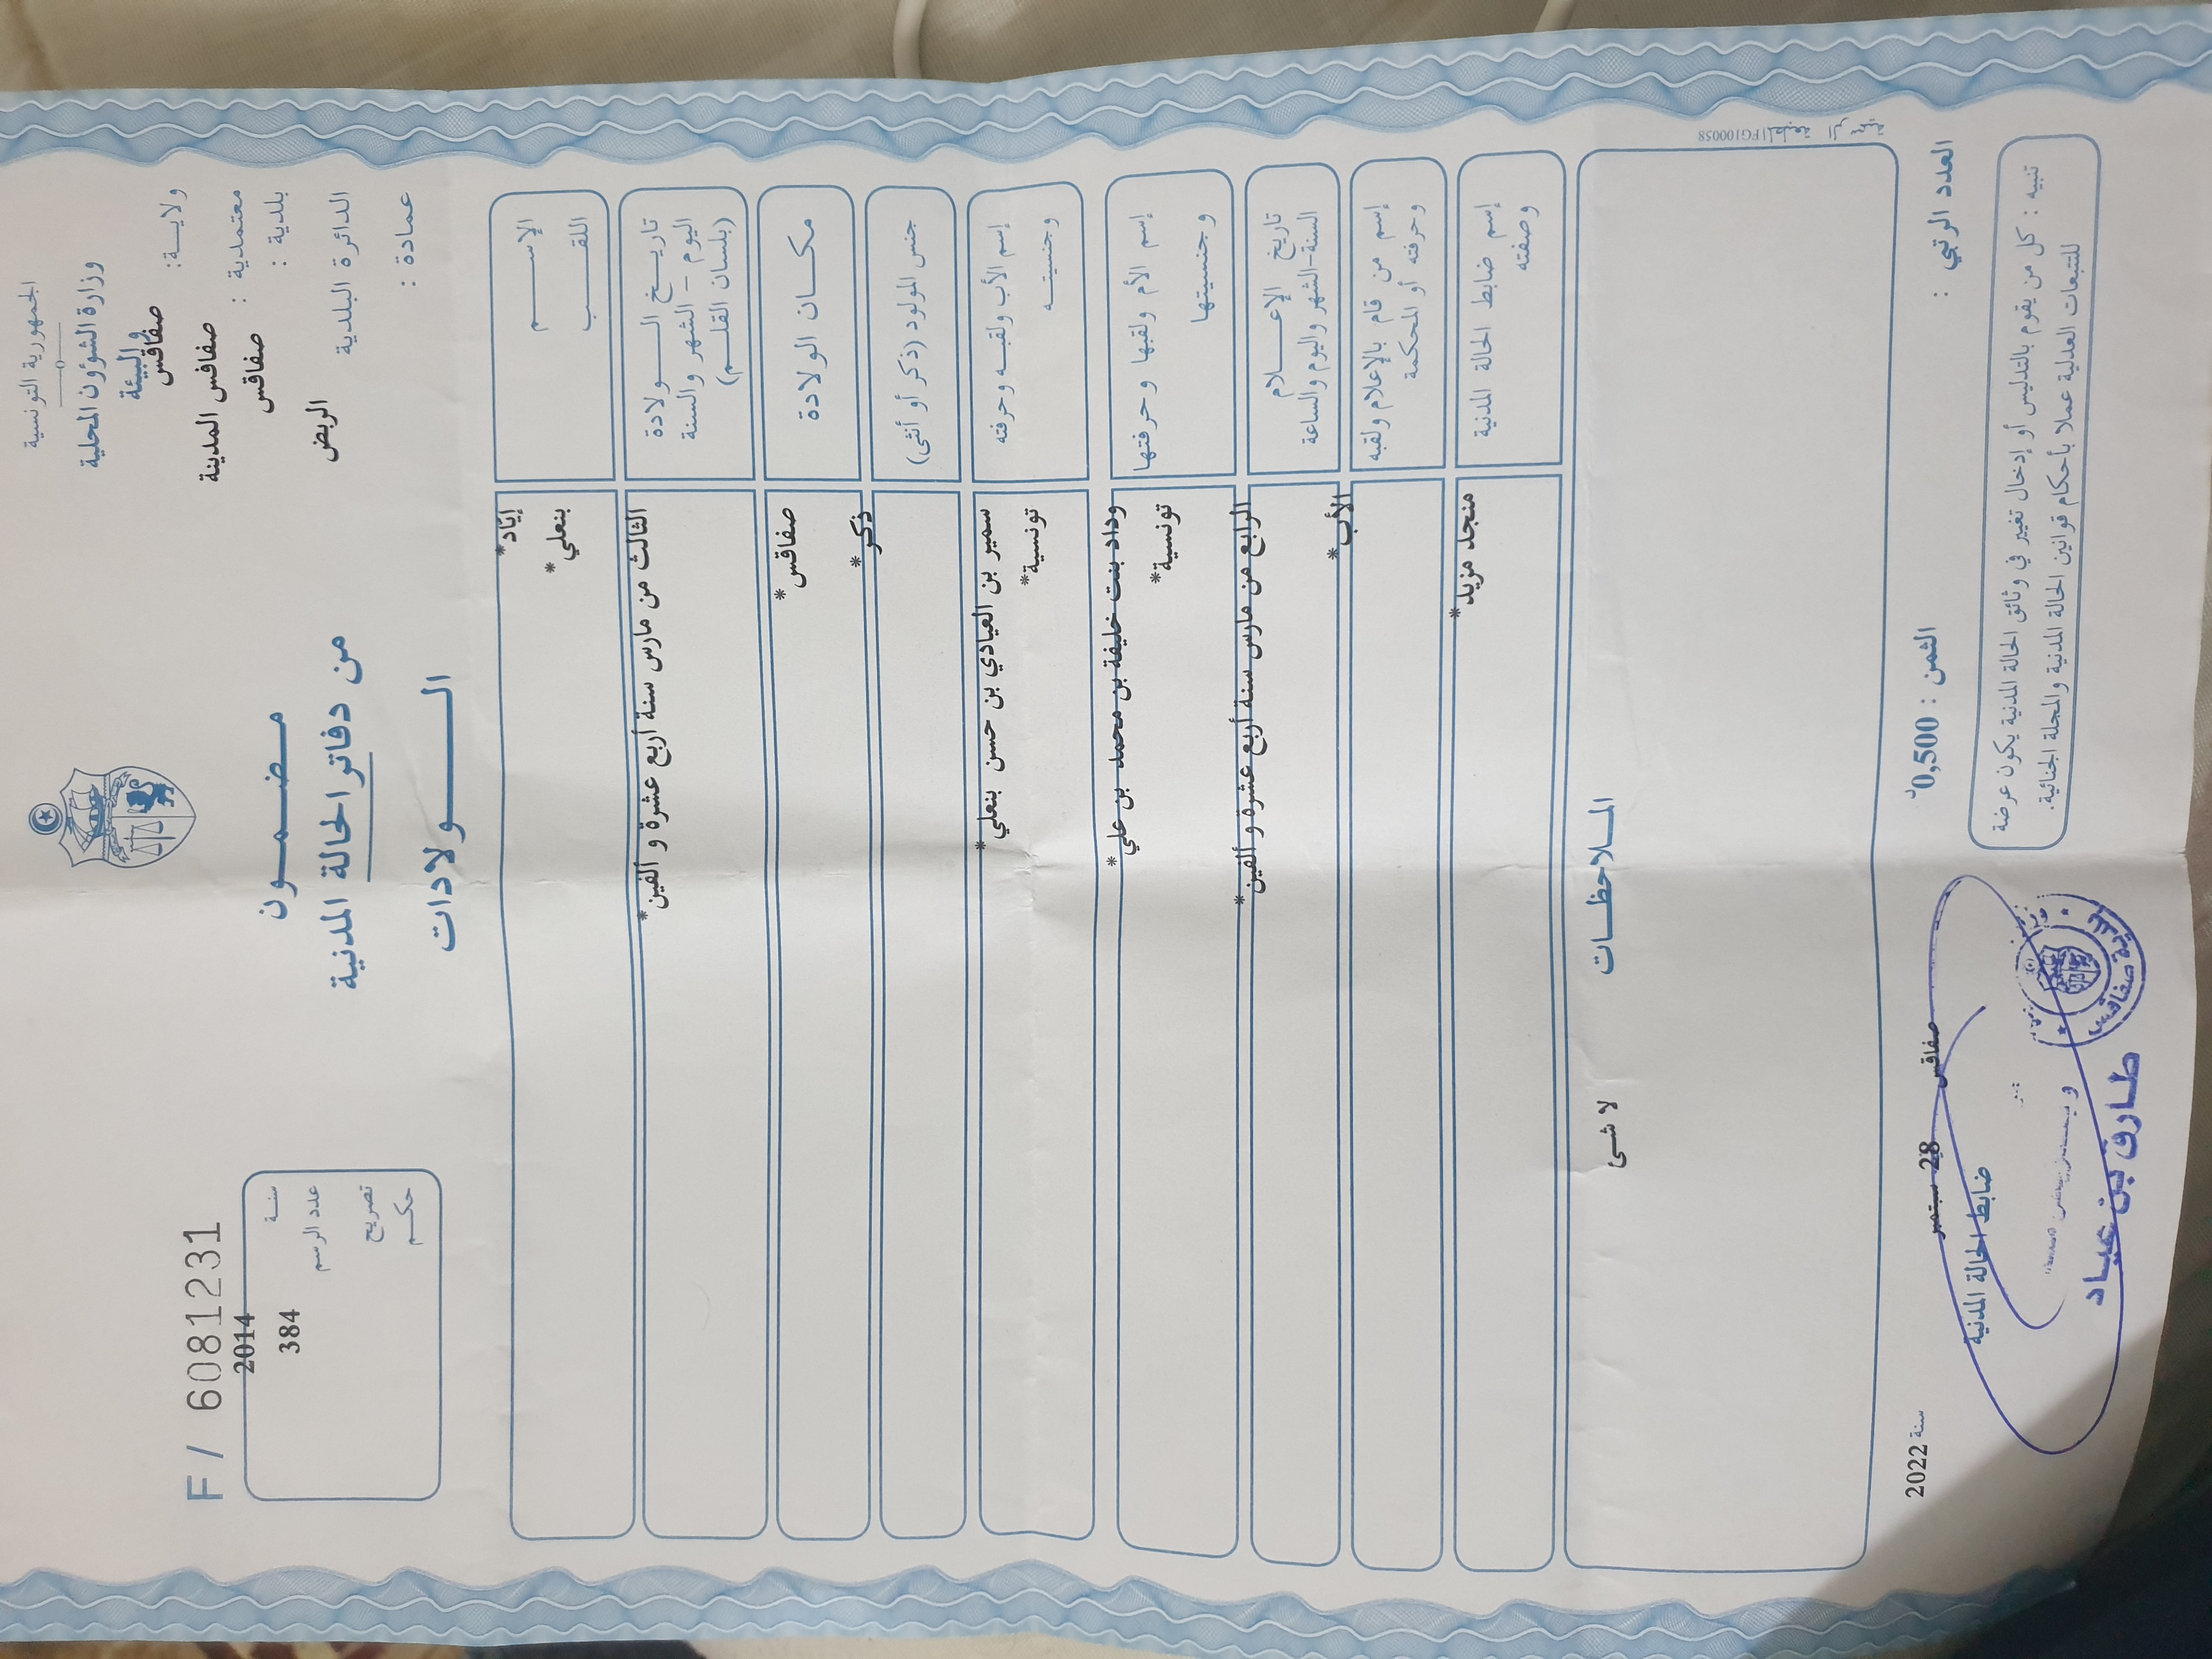 الجمهورية التونسية
وزارة الشؤون المحلية
والبيئة
ولايــة: صفاقس
معتمدية : صفاقس المدينة
بلدية : صفاقس
الدائرة البلدية الربض
عمادة :
مضمـــون
من دفاتر الحالة المدنية
الـــولادات
F / 6081231
سنـة 2014
عدد الرسم 384
تصريح
حكـم
الإســـم إيّاد*
اللقـــب بنعلي*
تاريــخ الـــولادة الثالث من مارس سنة أربع عشرة و ألفين*
اليوم - الشهر والسنة
(بلسان القلـم)
مكــان الولادة صفاقس*
جنس المولود (ذكر أو أنثى) ذكر*
إسم الأب ولقبـه وحرفته سمير بن العيادي بن حسن بنعلي*
وجنسيتـه تونسية*
إسم الأم ولقبها وحرفتها وداد بنت خليفة بن محمد بن علي*
وجنسيتها تونسية*
تاريخ الإعــلام الرابع من مارس سنة أربع عشرة و ألفين*
السنة-الشهر واليوم والساعة
إسم من قام بالإعلام ولقبه الأب*
وحرفته أو المحكمة
إسم ضابط الحالة المدنية منجد مزيد*
وصفته
الملاحظــات
لا شئ
المطبعة الرسمية FG100058
العدد الرتبي :
الثمن : 0,500د
صفاقس 28 سبتمبر سنة 2022
ضابط الحالة المدنية
تنبيه : كل من يقوم بالتدليس أو إدخال تغيير في وثائق الحالة المدنية يكون عرضة
للتتبعات العدلية عملا بأحكام قوانين الحالة المدنية والمجلة الجنائية.
بلدية صفاقس
طارق بن عياد